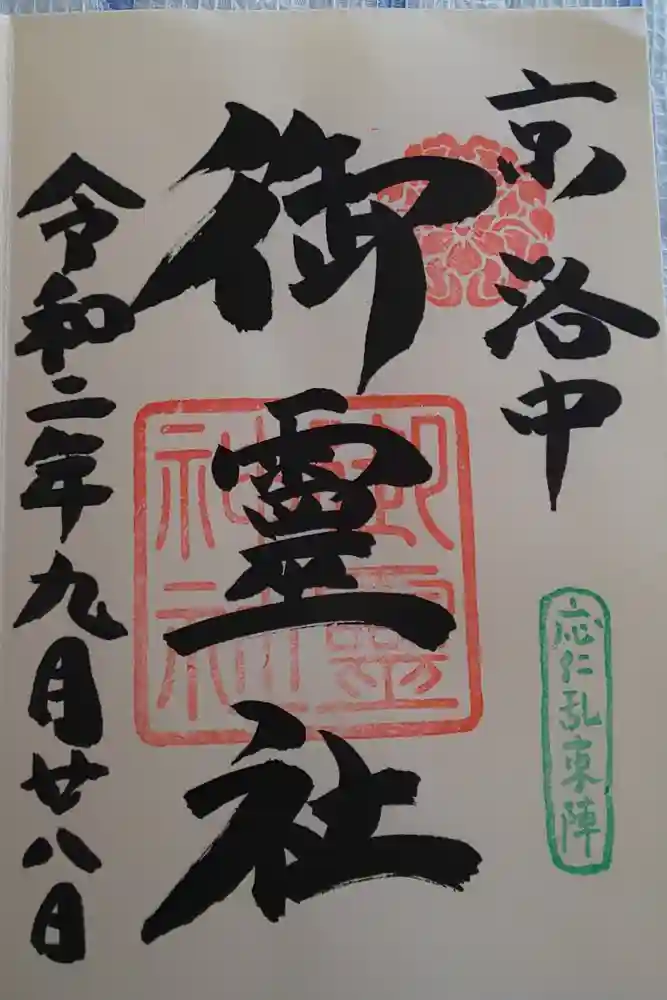 京洛中
応仁乱東陣
御靈社
御靈
神社
令和二年九月廿八日